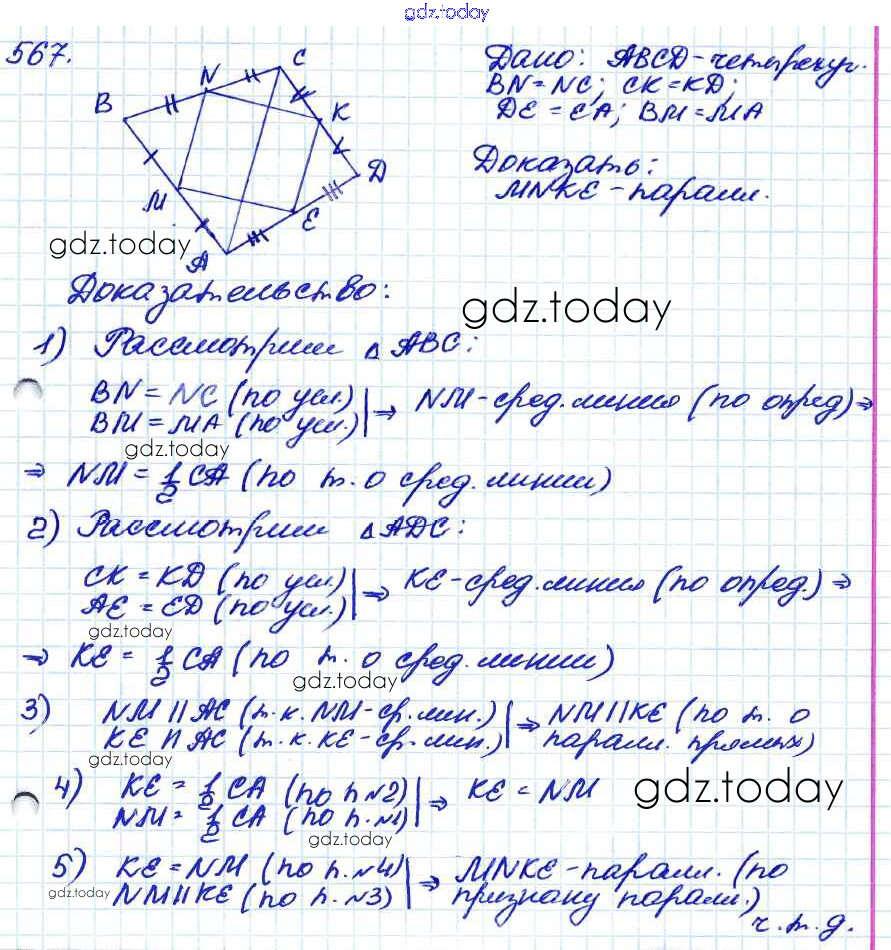 gdz.today
567.
B N C K D E A M
Дано: ABCD - четырехуг.
BN = NC; CK = KD;
DE = EA; BM = MA
Доказать:
MNKE - паралл.
gdz.today
Доказательство:
gdz.today
1) Рассмотрим △ ABC:
BN = NC (по усл.)
BM = MA (по усл.) | ⇒ NM - сред. линия (по опред) ⇒
gdz.today
⇒ NM = 1/2 CA (по т. о сред. линии)
2) Рассмотрим △ ADC:
CK = KD (по усл.)
AE = ED (по усл.) | ⇒ KE - сред. линия (по опред.) ⇒
gdz.today
⇒ KE = 1/2 CA (по т. о сред. линии)
gdz.today
3) NM || AC (т.к. NM - ср. лин.) | ⇒ NM || KE (по т. о
KE || AC (т.к. KE - ср. лин.) | паралл. прямых)
gdz.today
4) KE = 1/2 CA (по п. №2) | ⇒ KE = NM
NM = 1/2 CA (по п. №1)
gdz.today
gdz.today
5) KE = NM (по п. №4) | ⇒ MNKE - паралл. (по
gdz.today
NM || KE (по п. №3) | признаку паралл.)
ч.т.д.